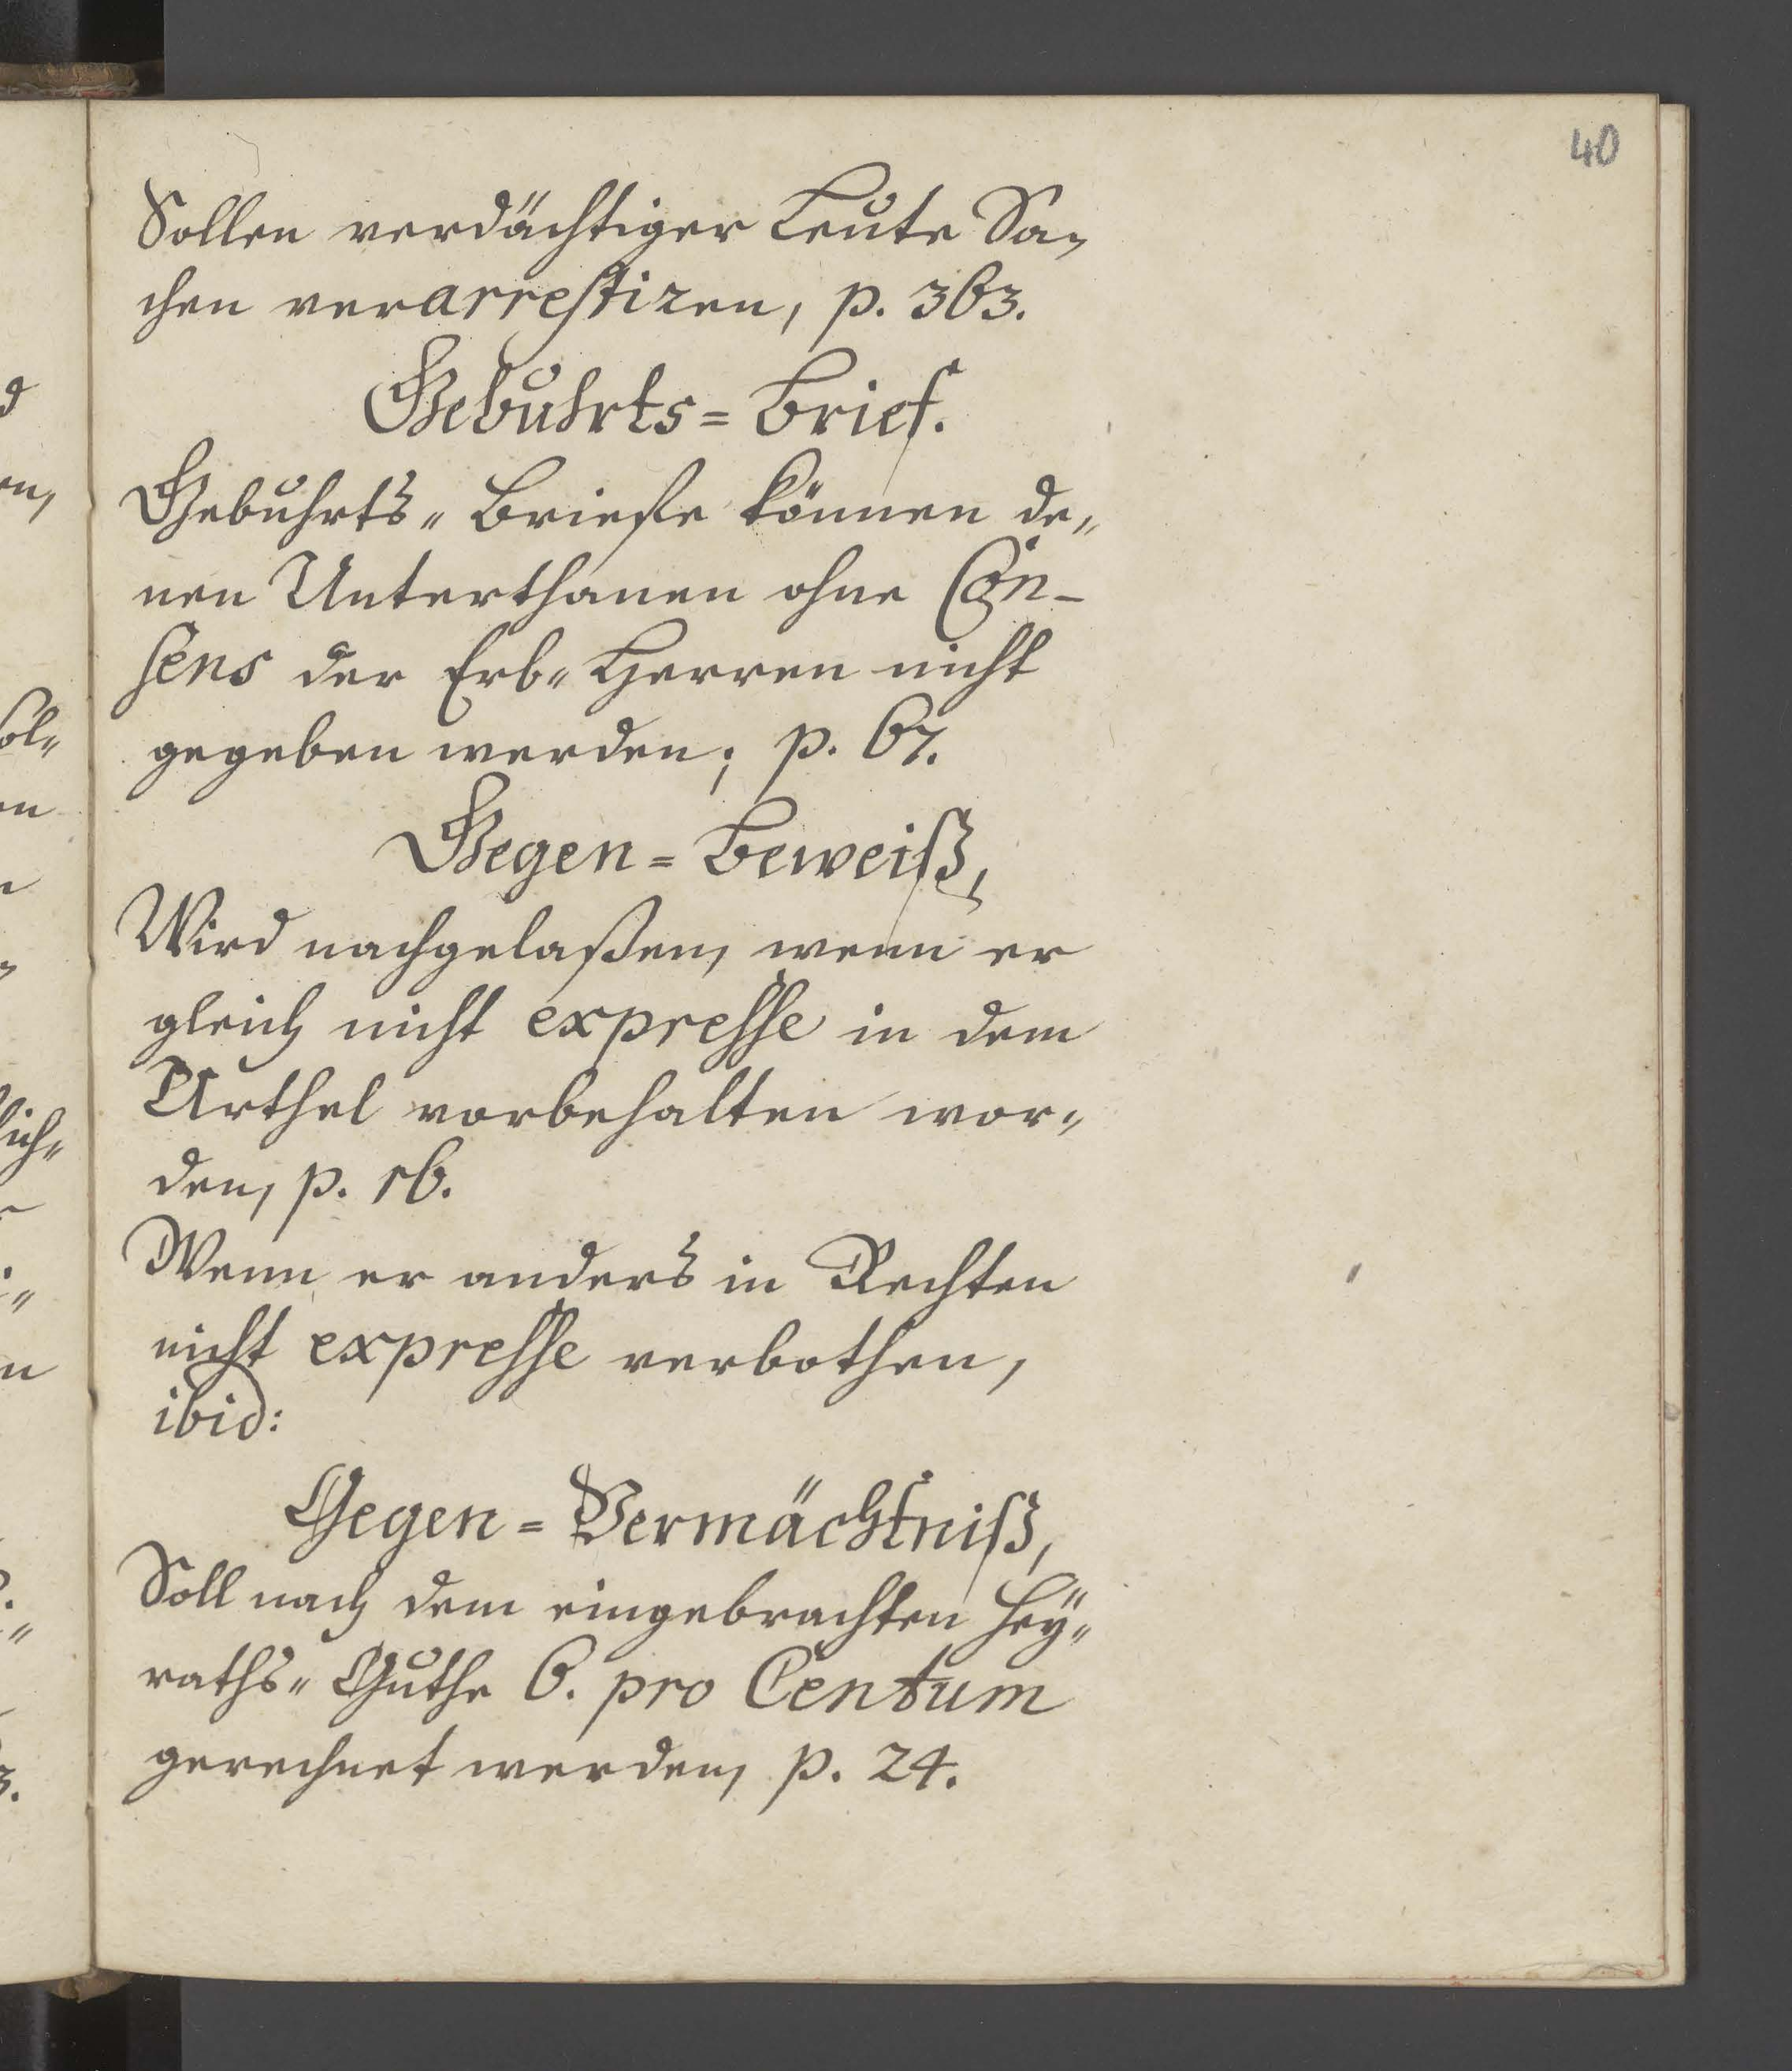 40
Sollen verdächtiger Leute Sa-
chen verarrestiren, p. 363.
Gebuhrts=Brief.
Gebuhrts-Briefe können de-
nen Unterthanen ohne Con-
sens der Erb-Herren nicht
gegeben werden; p. 67.
Gegen=Beweiß,
Wird nachgelaßen, wenn er
gleich nicht expresse in dem
Urthel vorbehalten wor-
den, p. 16.
Wenn er anders in Rechten
nicht expresse verbothen,
ibid:
Gegen=Vermächtniß,
Soll nach dem eingebrachten Hey-
raths-Guthe 6. pro Centum
gerechnet werden, p. 24.